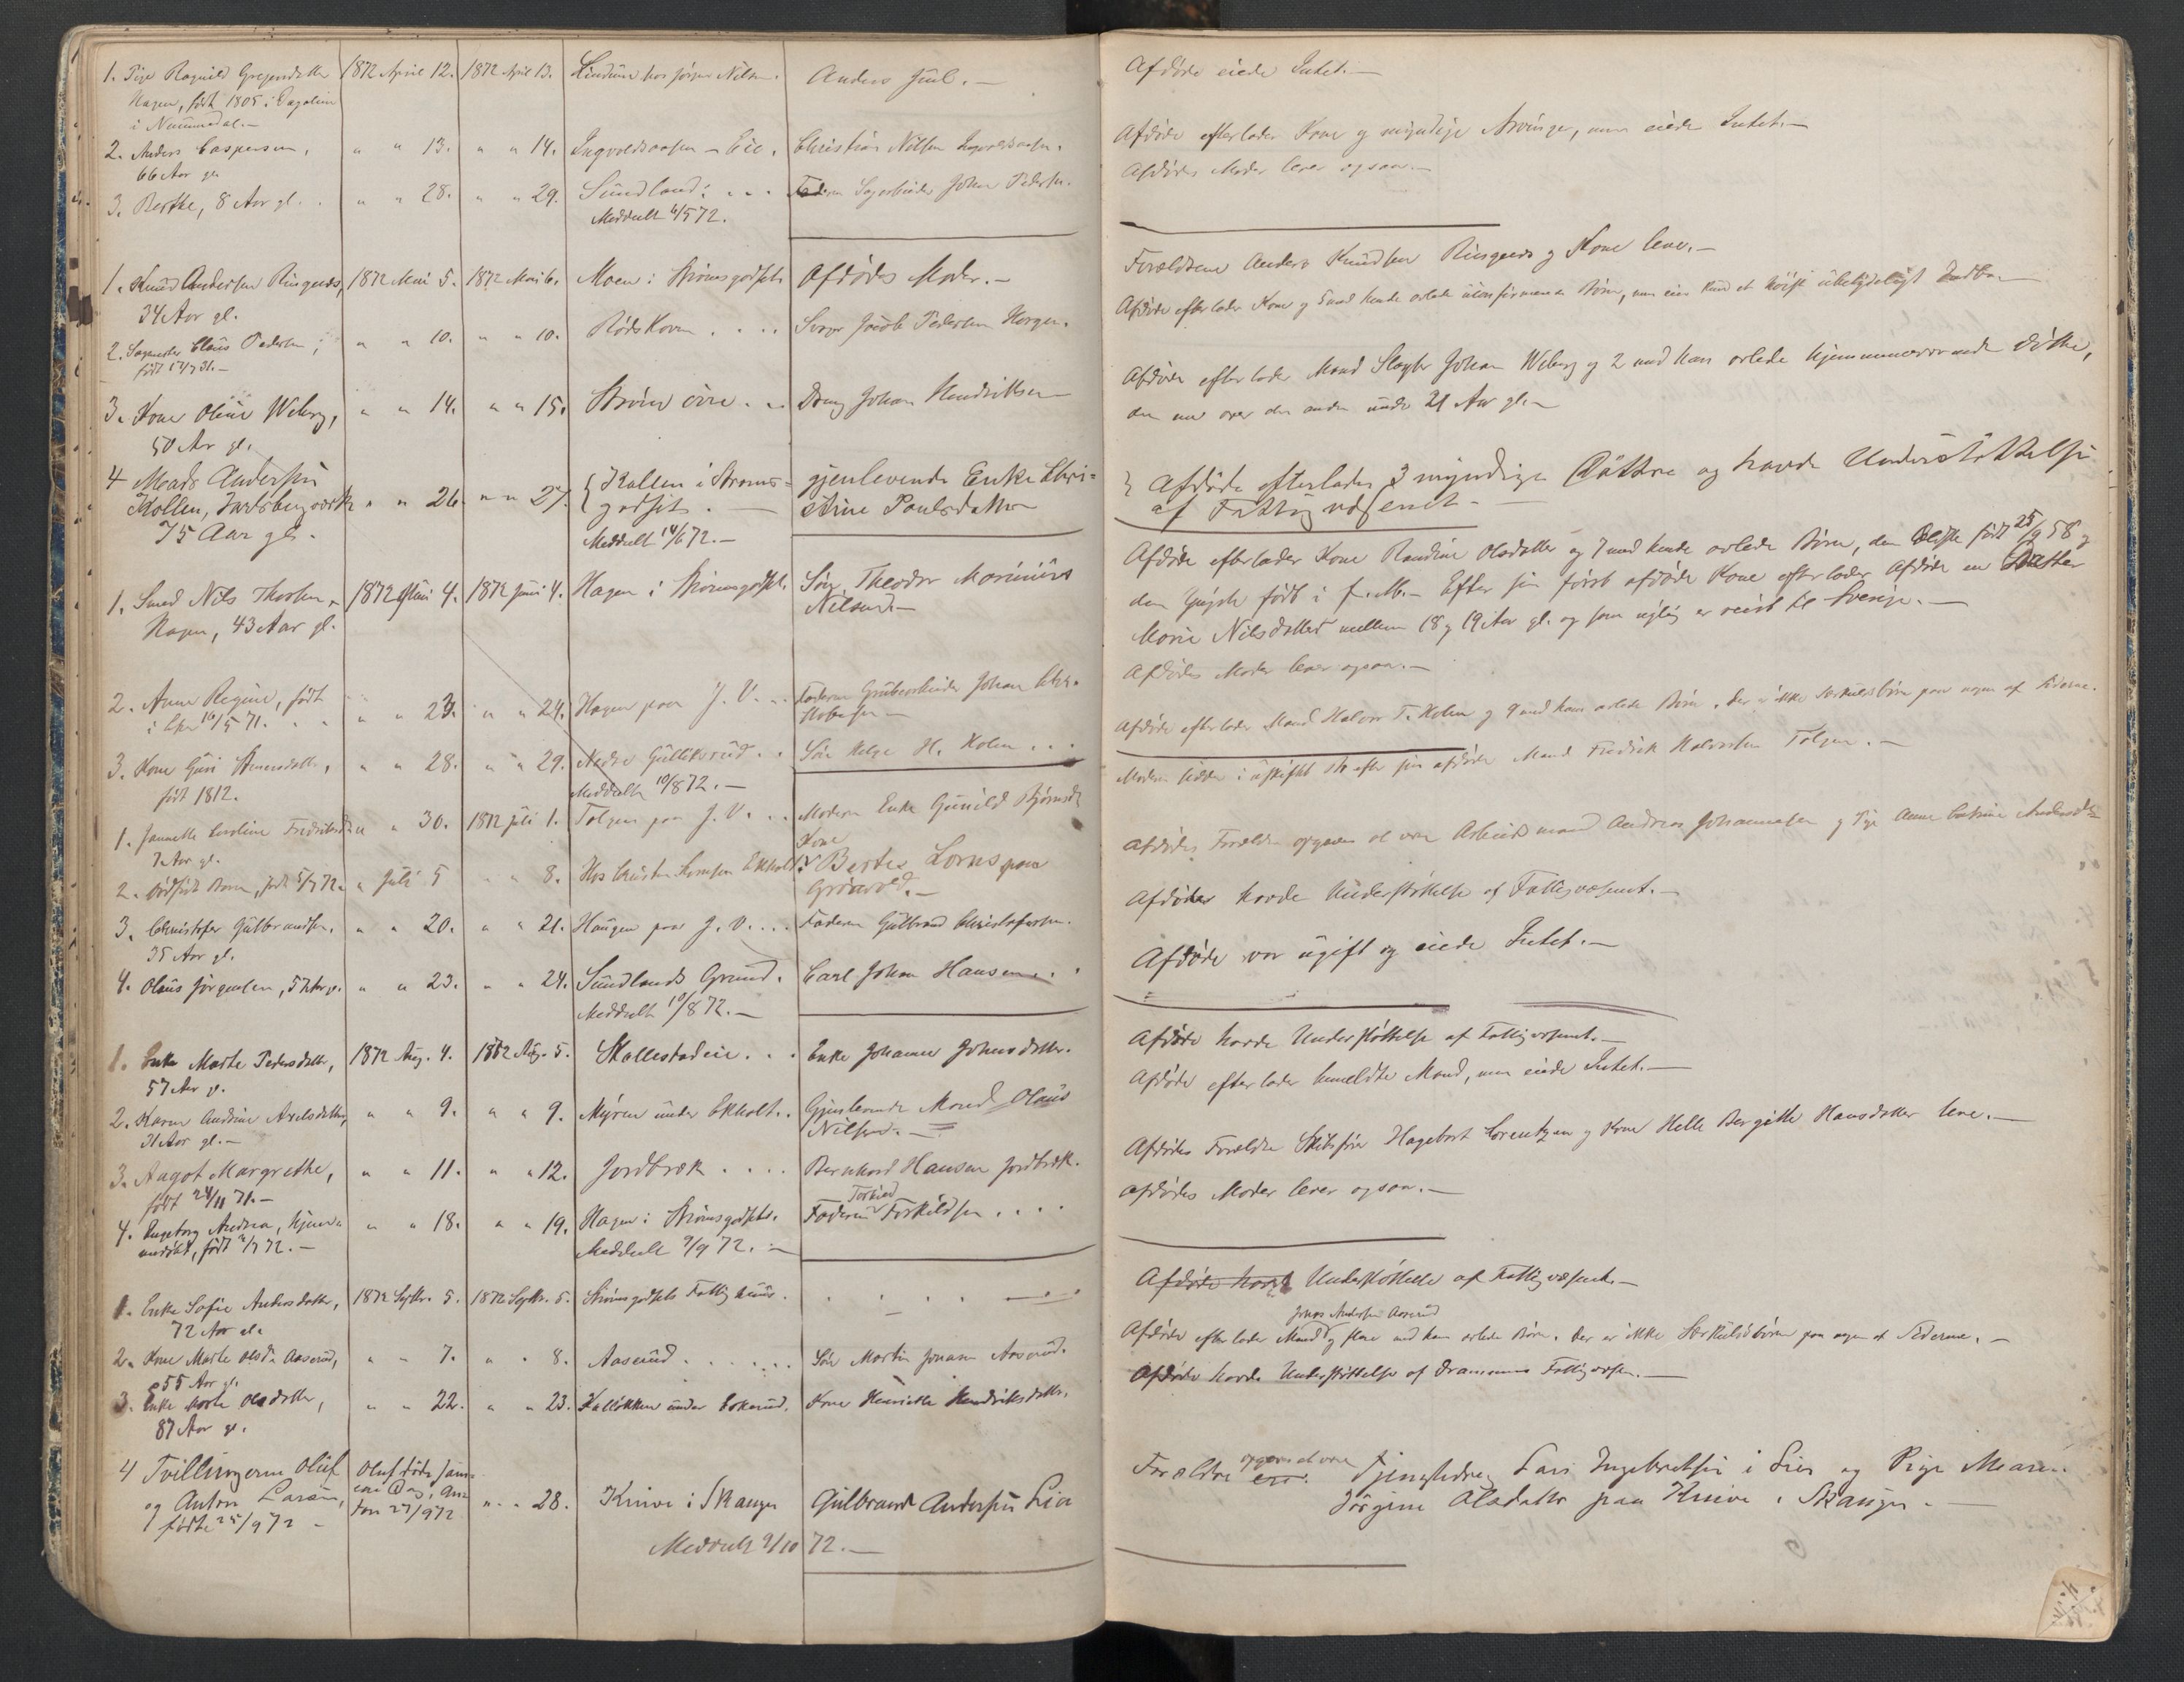 1. Pige Ragnild Gregersdatter 1872 April 12. 1872 April 13. Lindum hos Jørgen Nilsen. Anders Juul.—
Hagen, født 1805 i
i Nummedal.—
2. Anders Caspersen, " " 13. " " 14. Ingvoldsaasen - Eie. Christian Nilsen Ingvoldsaasen.
66 Aar gl.
3. Berthe, 8 Aar gl. . " " 28. " " 29. Sundland: . . . Faderen Johan Pedersen.
Meddelt 6/5 72.
1. Knud Andersen Ringnes, 1872 Mai 5. 1872 Mai 6. Moen i Strømsgodset Afdødes Moder.—
34 Aar gl.
2. Claus Pedersen, " " 10. " " 10. Rødskoven . . . . Svoger Jacob Pedersen Horgen.
født
3. Kone Oline Weberg, " " 14. " " 15. Strøm øvre . . Johan Hendriksen
50 Aar gl.
4 Mads Andersen
Kollen, Jarlsbergværk " " 26. " " 27. { Kollen i Stroms- gjenlevende Enke Chri-
75 Aar gl. godset. stine Paulsdatter
Meddelt 14/6 72.—
1. Smed Nils Thorsen 1872 Juni 4. 1872 Juni 4. Hagen i Strømsgodset. Søn Theodor Marinius
Hagen, 43 Aar gl. Nilsen.—
2. Anne Regine, født
i Eker 16/5 71. . . " " 23. " " 24. Hagen paa J. V. . . Faderen Grubearbeider Johan Chri-
stofersen—
3. Kone Guri Stenersdatter, " " 28. " " 29. Nedre Gulliksrud . . Søn Helge H. Holm . . .
født 1812. Meddelt 10/8 72.—
1. Jannette Caroline Fredriksdatter " 30. 1872 Juli 1. Tolgen paa J. V. . . Moderen Enke Gunild Bjørnsdt.
7 Aar gl.
2. Dødfødt Barn, født 5/7 72. " Juli 5 " " 8. Hos Ekholt. Kone Berte Lorns paa
Grønvold.—
3. Christofer Gulbrandsen, " " 20. " " 21. Haugen paa J. V. . . . Faderen Gulbrand Christofersen.
35 Aar gl.
4. Olaus Jørgensen, 57 Aar gl. " " 23. " " 24. Sundlands Grund. Carl Johan Hansen . .
Meddelt 10/8 72.—
1. Enke Marte Pedersdatter, 1872 Aug. 4. 1872 Aug. 5. Skallestadeie. . . Enke Johanne Johnsdatter.
57 Aar gl.
2. Karen Andrine Axelsdatter, " " 9. " " 9. Myren under Ekholt. . Gjenlevende Mand Olaus
31 Aar gl.— Nilsen.—
3. Aagot Margrethe, " " 11. " " 12. Jordbræk . . . . Bernhard Hansen Jordbræk.
født 24/11 71.—
4. Ingeborg Andrea, hjemme- " " 18. " " 19. Hagen i Strømsgodset. Faderen Torkild Torkildsen . . . .
døbt, født 72.— Meddelt 9/9 72.—
1. Enke Sofie Andersdatter, 1872 Septbr. 5. 1872 Septbr. 5. Strømsgodsets Fattighuus. . . . . —
72 Aar gl.
2. Kone Marte Olsdr. Aaserud, " " 7. " " 8. Aaserud . . . . . . Søn Martin Jonasen Aaserud.
55 Aar gl.
3. Enke Olsdatter, " " 22. " " 23. Kalløkken under Eknerud. Kone Henriette Hendriksdatter.
87 Aar gl.
4 Tvillingerne Oluf Oluf døde sam-
og Anton Larsen, me Dag, An- " " 28. Knive i Skauger Gulbrand Andersen Lia
fødte 25/9 72 — ton 27/9 72
Meddelt 9/10 72.—
Afdøde eiede Intet.—
Afdøde efterlader Kone og myndige Arvinger, men eiede Intet.—
Afdødes Moder lever ogsaa.—
Forældrene Anders Knudsen Ringnes og Kone lever.—
Afdøde efterlader Kone og 5 med hende avlede uconfirmerede Børn, men eier kun et høist ubetydeligt Indbo.—
Afdøde efterlader Mand Slagter Johan Weberg og 2 med ham avlede hjemmeværende Døttre,
den ene over den anden under 21 Aar gl.—
} Afdøde efterlader 3 myndige Døttre og havde Understøttelse
af Fattigvæsenet —
Afdøde efterlader Kone Randine Olsdatter og 7 med hende avlede Børn, den Ældste født 25/9 58 og
den Yngste født i f. M.— Efter sin først afdøde Kone efterlader Afdøde en Datter
Marie Nilsdatter mellem 18 og 19 Aar gl. og som nylig er reist til Sverige.—
Afdødes Moder lever ogsaa.—
Afdøde efterlader Mand Halvor T. Holm og 9 med ham avlede Børn. Der er ikke Særkuldsbørn paa nogen af Siderne.
Moderen sidder i uskiftet Bo efter sin afdøde Mand Fredrik Halvorsen Tolgen.—
Afdødes Forældre opgaves at være Arbeidsmand Andreas Johannesen og Pige Anne Cathrine Andersdtr.
Afdøde havde Understøttelse af Fattigvæsenet.—
Afdøde var ugift og eiede Intet.—
Afdøde havde Understøttelse af Fattigvæsenet.—
Afdøde efterlader bemeldte Mand, men eiede Intet.—
Afdødes Forældre Skibsfører Hagebart Lorentzen og Kone Helle Bergitte Hansdatter lever.—
Afdødes Moder lever ogsaa.—
Afdøde havde Understøttelse af Fattigvæsenet.—
Jonas Andersen Aaserud
Afdøde efterlader Mand og flere med ham avlede Børn. Der er ikke Særkuldsbørn paa nogen af Siderne.—
Afdøde havde Understøttelse af Drammens Fattigvæsen.—
opgaves at være
Forældre ere: Tjenestedreng Lars Ingebretsen i Lier og Pige Maren
Jørgine Olsdatter paa Knive i Skauger.—